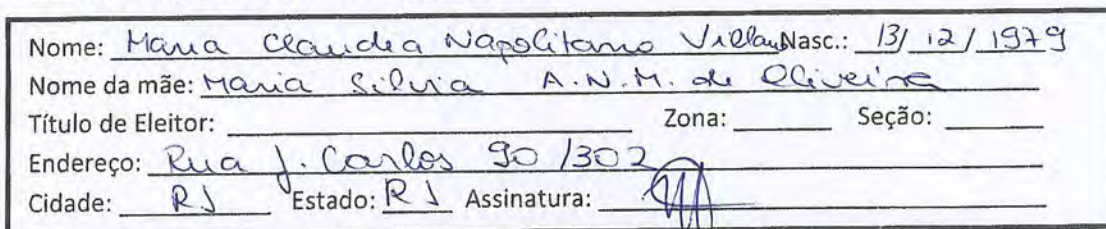 Nome: Maria Claudia Napolitano Villau Nasc.: 13/12/1979
Nome da mãe: Maria Silvia A.N.M. de Oliveira
Título de Eleitor: Zona: Seção:
Endereço: Rua J. Carlos 90/302
Cidade: RJ Estado: RJ Assinatura: